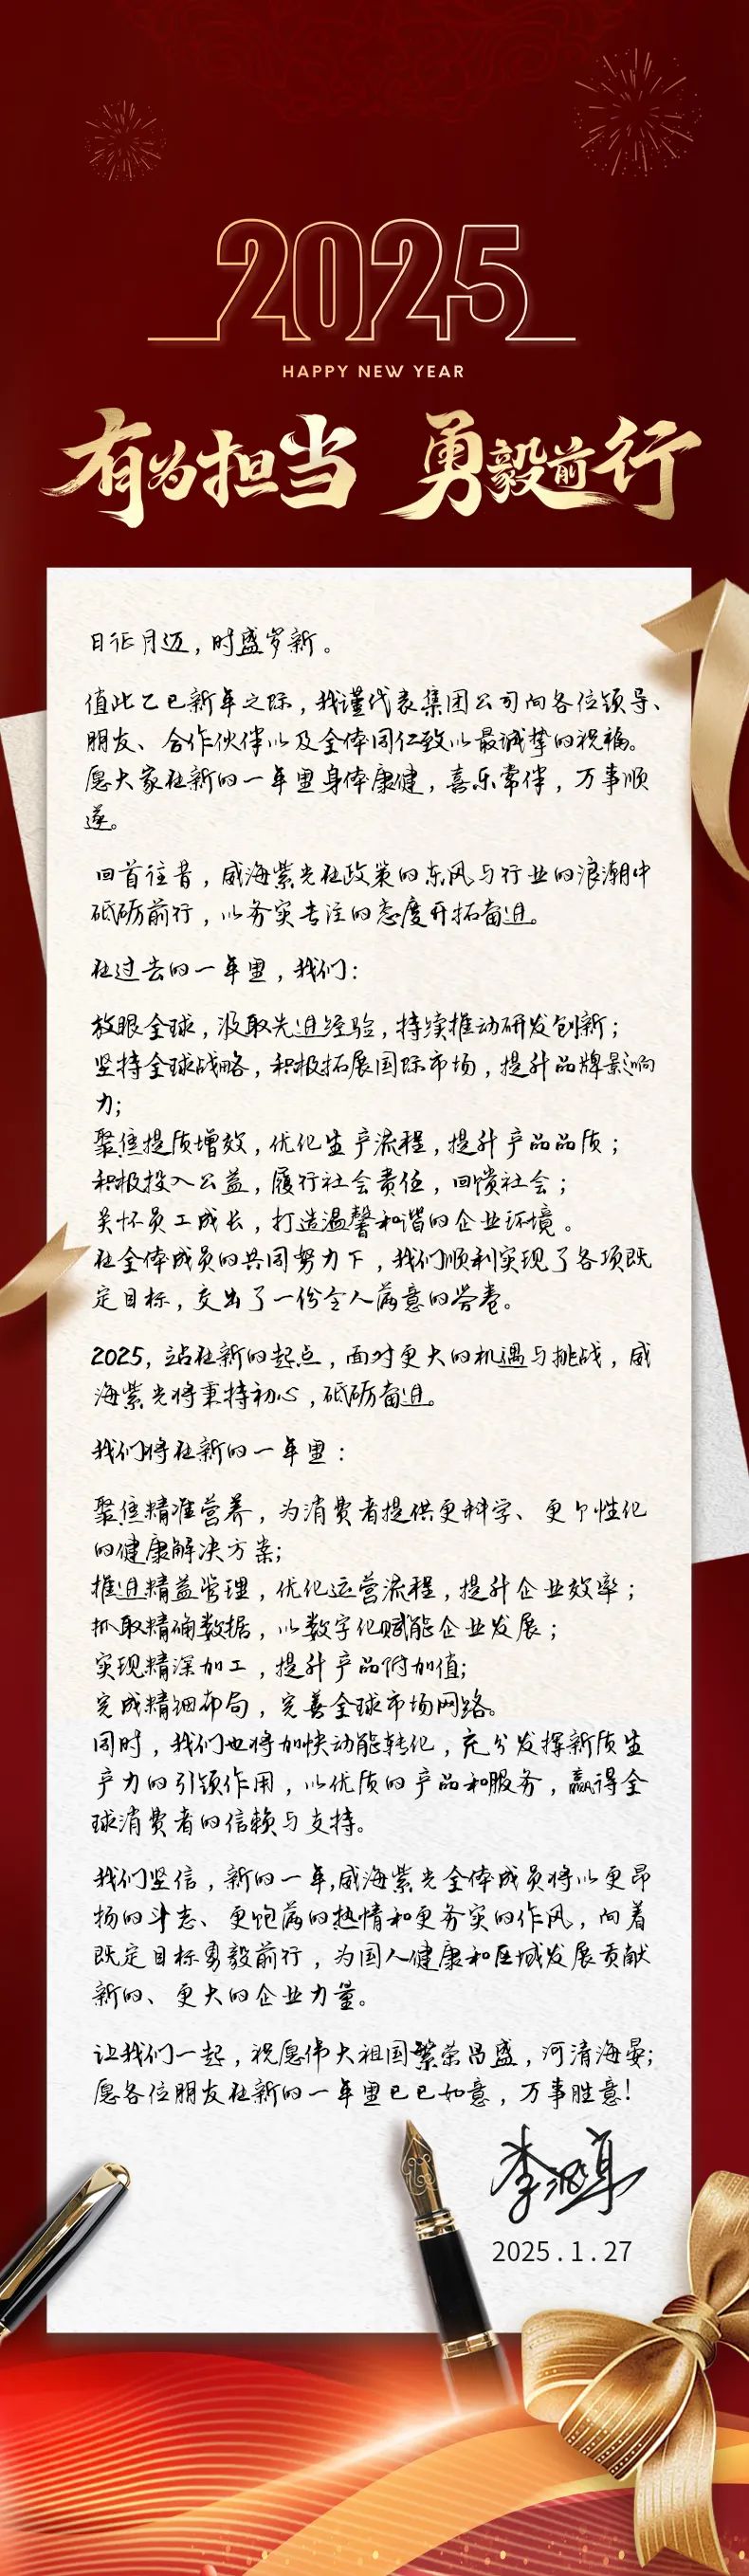 2025
HAPPY NEW YEAR
有为担当 勇毅前行
日征月迈，时盛岁新。
值此乙巳新年之际，我谨代表集团公司向各位领导、
朋友、合作伙伴以及全体同仁致以最诚挚的祝福。
愿大家在新的一年里身体康健，喜乐常伴，万事顺
遂。
回首往昔，威海紫光在政策的东风与行业的浪潮中
砥砺前行，以务实专注的态度开拓奋进。
在过去的一年里，我们：
放眼全球，汲取先进经验，持续推动研发创新；
坚持全球战略，积极拓展国际市场，提升品牌影响
力；
聚焦提质增效，优化生产流程，提升产品品质；
积极投入公益，履行社会责任，回馈社会；
关怀员工成长，打造温馨和谐的企业环境。
在全体成员的共同努力下，我们顺利实现了各项既
定目标，交出了一份令人满意的答卷。
2025，站在新的起点，面对更大的机遇与挑战，威
海紫光将秉持初心，砥砺奋进。
我们将在新的一年里：
聚焦精准营养，为消费者提供更科学、更个性化
的健康解决方案；
推进精益管理，优化运营流程，提升企业效率；
抓取精确数据，以数字化赋能企业发展；
实现精深加工，提升产品附加值；
完成精细布局，完善全球市场网络。
同时，我们也将加快动能转化，充分发挥新质生
产力的引领作用，以优质的产品和服务，赢得全
球消费者的信赖与支持。
我们坚信，新的一年,威海紫光全体成员将以更昂
扬的斗志、更饱满的热情和更务实的作风，向着
既定目标勇毅前行，为国人健康和区域发展贡献
新的、更大的企业力量。
让我们一起，祝愿伟大祖国繁荣昌盛，河清海晏；
愿各位朋友在新的一年里巳巳如意，万事胜意！
2025.1.27